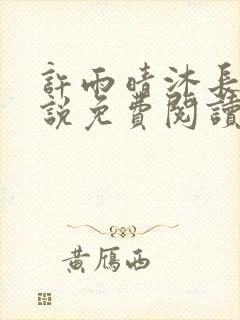 許雨晴沐長
說免費閱讀
黃雁西